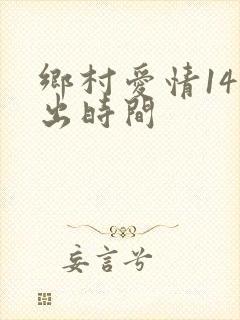 鄉村愛情14
出時間
妄言兮